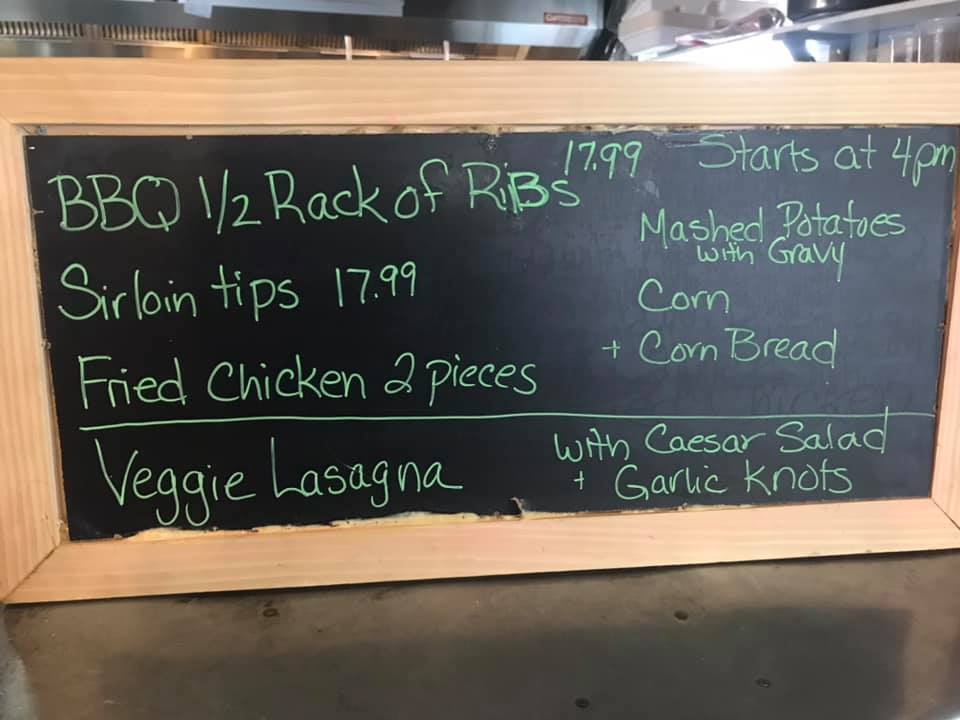 BBQ 1/2 Rack of Ribs 17.99
Sirloin tips 17.99
Fried Chicken 2 pieces
Starts at 4pm
Mashed Potatoes
with Gravy
Corn
+ Corn Bread
Veggie Lasagna
with Caesar Salad
+ Garlic Knots